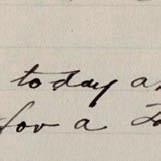 today
for a